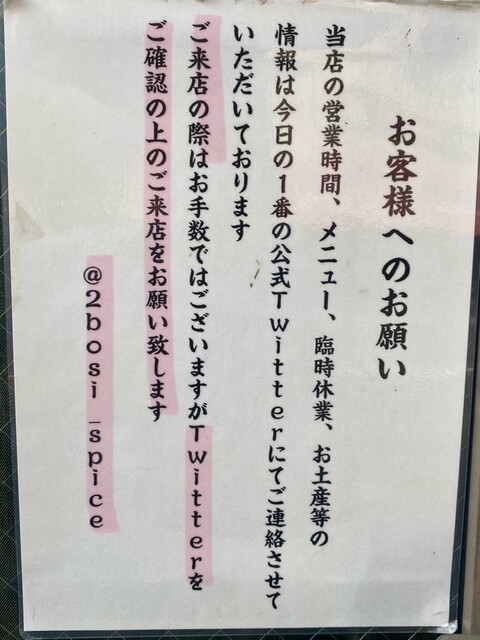 お客様へのお願い
当店の営業時間、メニュー、臨時休業、お土産等の
情報は今日の1番の公式Twitterにてご連絡させて
いただいております
ご来店の際はお手数ではございますがTwitterを
ご確認の上のご来店をお願い致します
@2bosi_spice